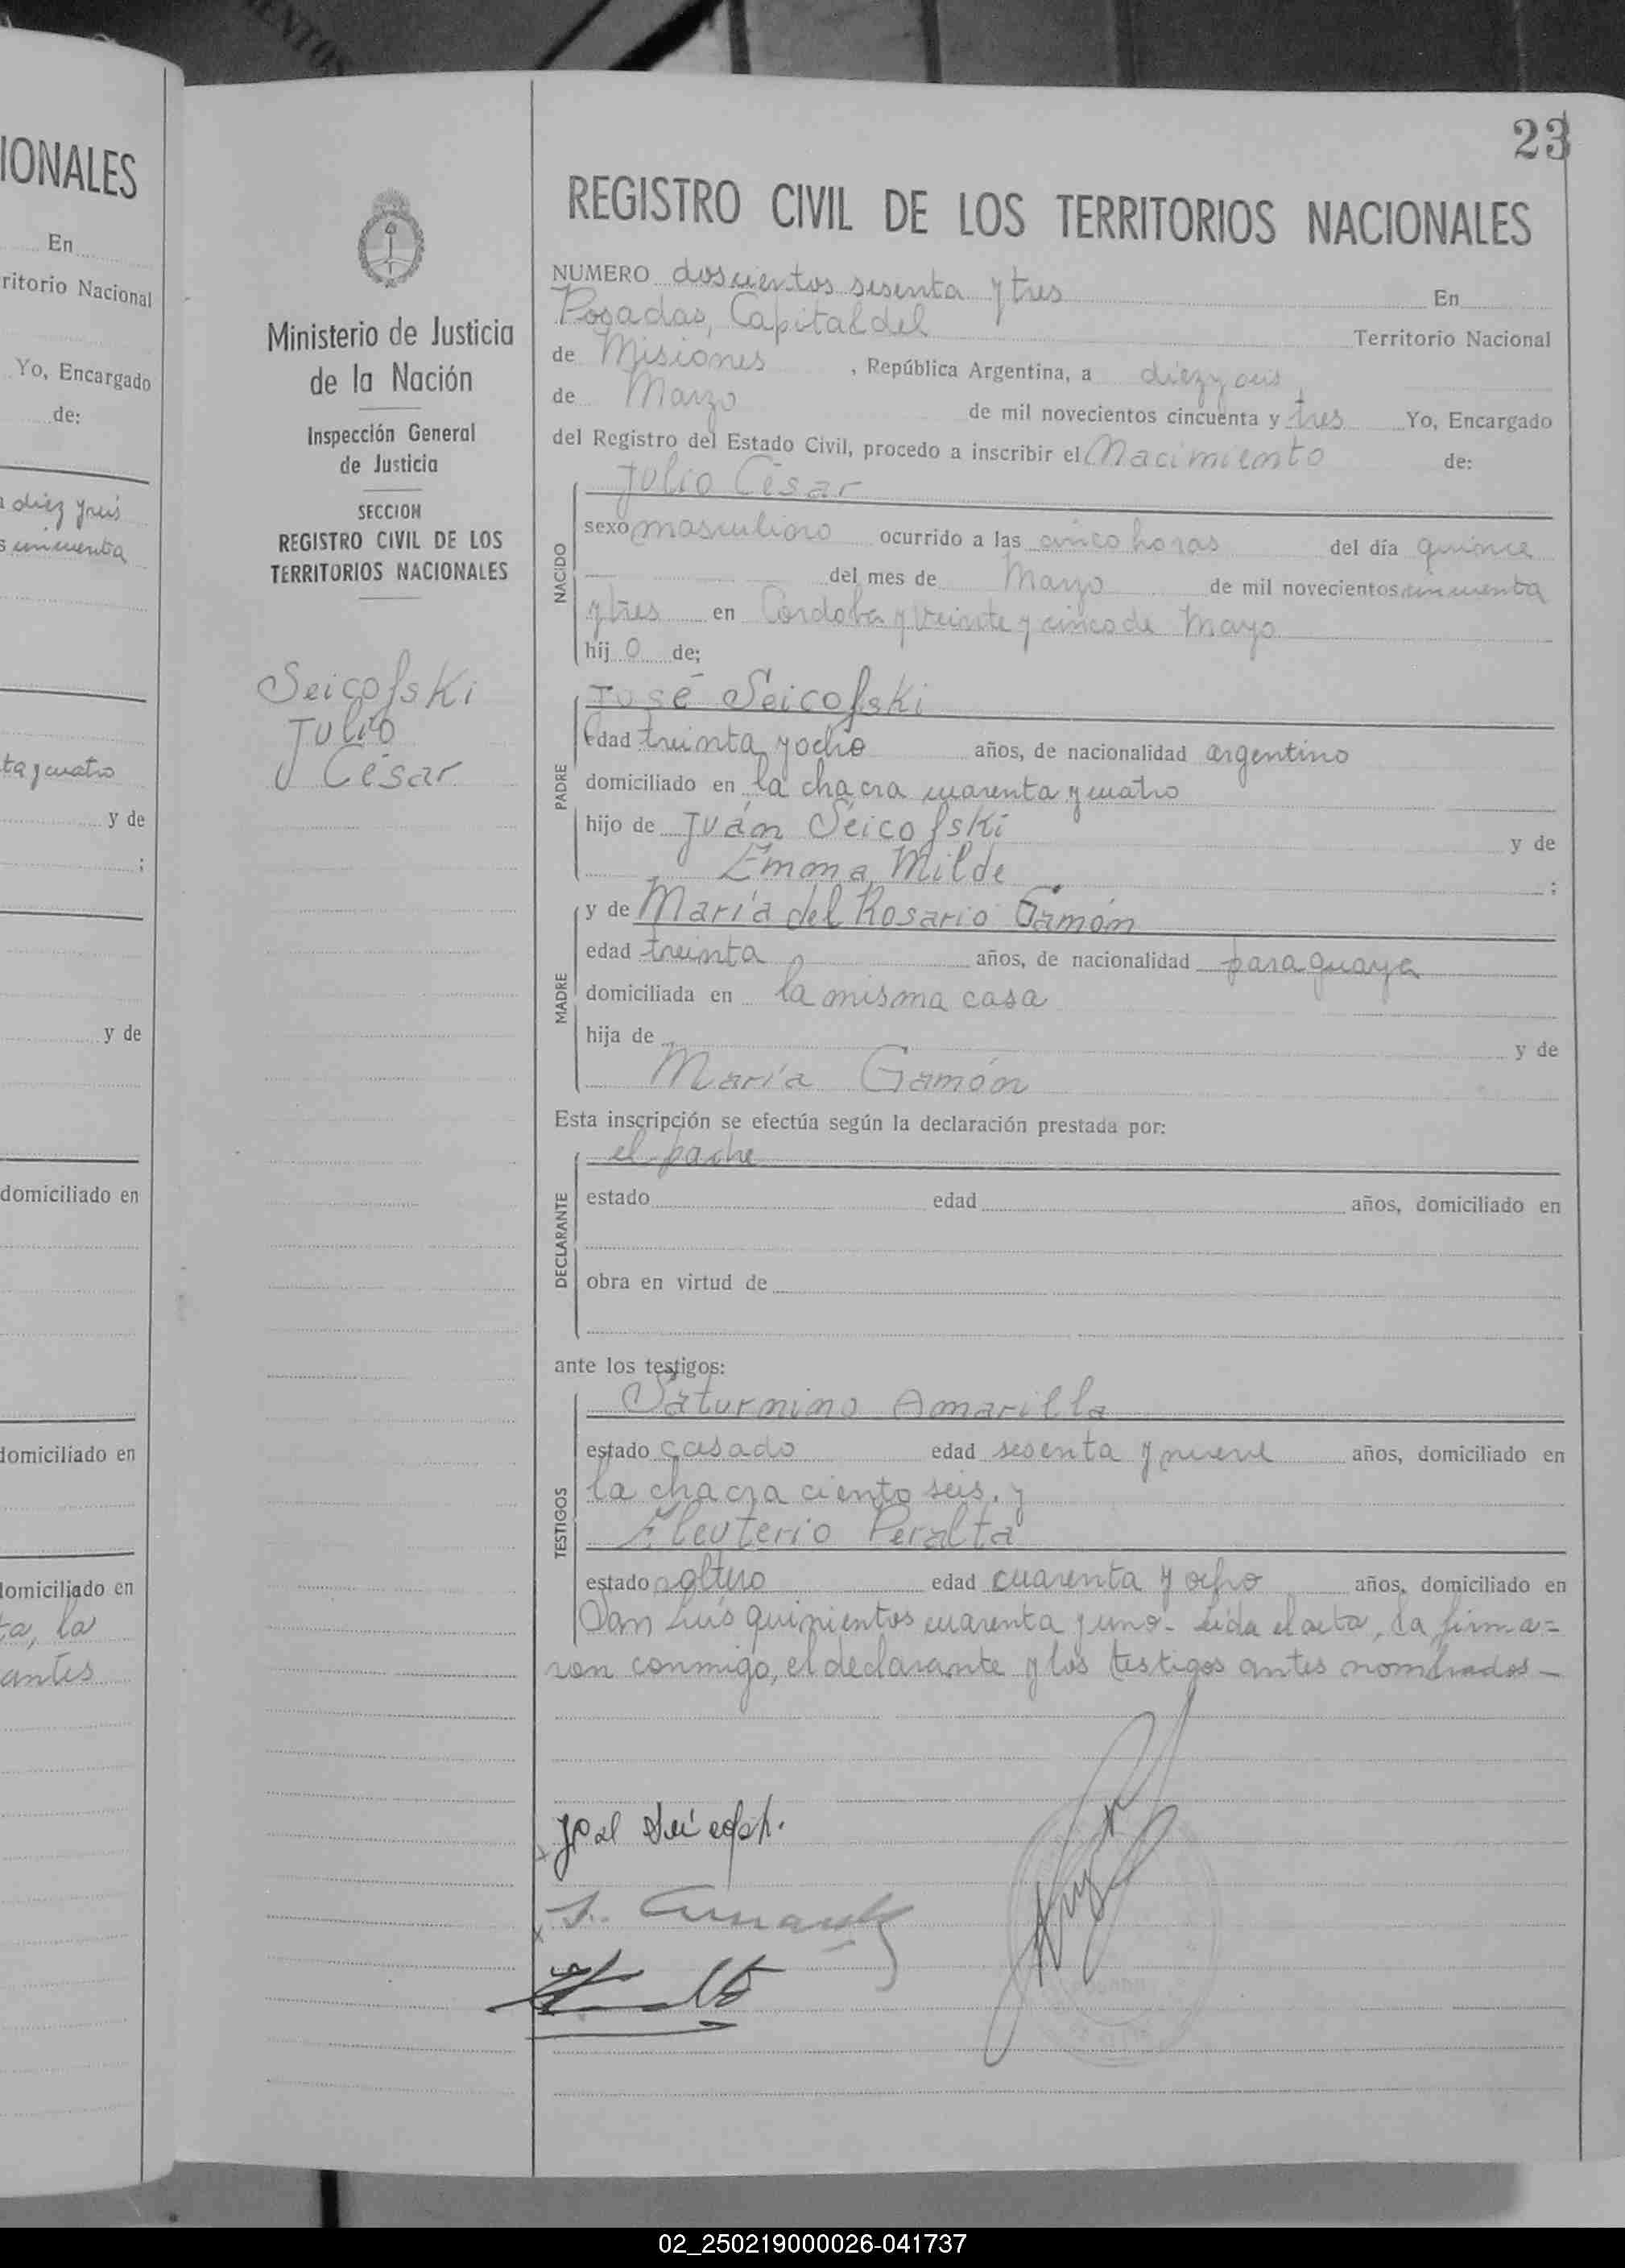 IONALES
En
ritorio Nacional
Yo, Encargado
de:
diez y seis
cincuenta
ta y cuatro
y de
;
y de
domiciliado en
domiciliado en
domiciliado en
ta, la
antes
Ministerio de Justicia
de la Nación
Inspección General
de Justicia
SECCION
REGISTRO CIVIL DE LOS
TERRITORIOS NACIONALES
Seicofski
Julio
César
23
REGISTRO CIVIL DE LOS TERRITORIOS NACIONALES
NUMERO doscientos sesenta y tres En
Posadas, Capital del Territorio Nacional
de Misiones, República Argentina, a diez y seis
de Marzo de mil novecientos cincuenta y tres Yo, Encargado
del Registro del Estado Civil, procedo a inscribir el Nacimiento de:
Julio César
NACIDO
sexo masculino ocurrido a las cinco horas del día quince
del mes de Marzo de mil novecientos cincuenta
y tres en Cordoba y Veinte y cinco de Mayo
hij o de;
José Seicofski
PADRE
Edad treinta y ocho años, de nacionalidad argentino
domiciliado en la chacra cuarenta y cuatro
hijo de Juán Seicofski y de
Emma Milde ;
MADRE
y de María del Rosario Gamón
edad treinta años, de nacionalidad paraguaya
domiciliada en la misma casa
hija de y de
María Gamón
Esta inscripción se efectúa según la declaración prestada por:
el padre
DECLARANTE
estado edad años, domiciliado en
obra en virtud de
ante los testigos:
Saturnino Amarilla
TESTIGOS
estado casado edad sesenta y nueve años, domiciliado en
la chacra ciento seis. y
Eleuterio Peralta
estado soltero edad cuarenta y ocho años, domiciliado en
San Luis quinientos cuarenta y uno - leida el acta, la firma=
ron conmigo, el declarante y los testigos antes nombrados -
02_250219000026-041737